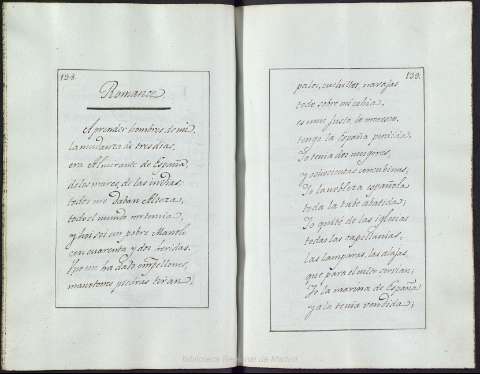 138.
Romance
Aprended hombres de mi,
la mudanza de tres dias,
era Almirante de España,
de los mares de las indias
todos me daban Alteza,
todo el mundo me temia,
y hoi soi un pobre Manolo
con cuarenta y dos heridas.
han dado empellones,
piedras tiran,
139.
palos, cuchillos, navajas
todo sobre mi cahia,
es mui justo lo merezco,
tengo la España perdida,
Yo tenia dos mugeres,
y ochocientas concubinas,
Yo la nobleza española
toda la tube abatida;
Yo quité de las iglesias
todas las capellanias,
las lamparas, las alajas,
que para el culto servian;
Yo la marina de España
ya la tenia vendida;
Biblioteca Regional de Madrid